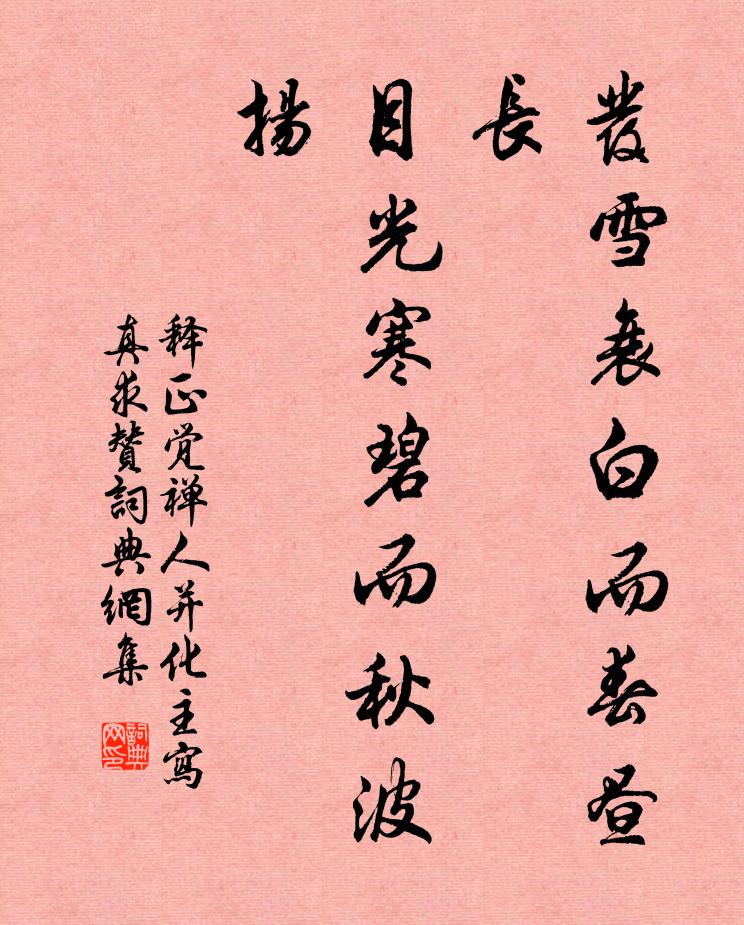 發雪衰白而春昼
長
目光寒碧而秋波
揚
释正觉禅人并化主寫
真求贊詞典網集
詞典网印